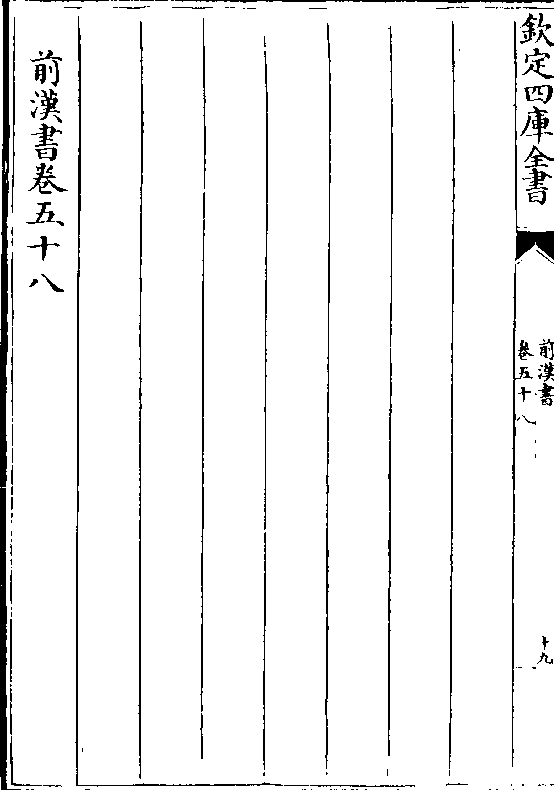 欽定四庫全書
前漢書
卷五十八
十九
前漢書卷五十八